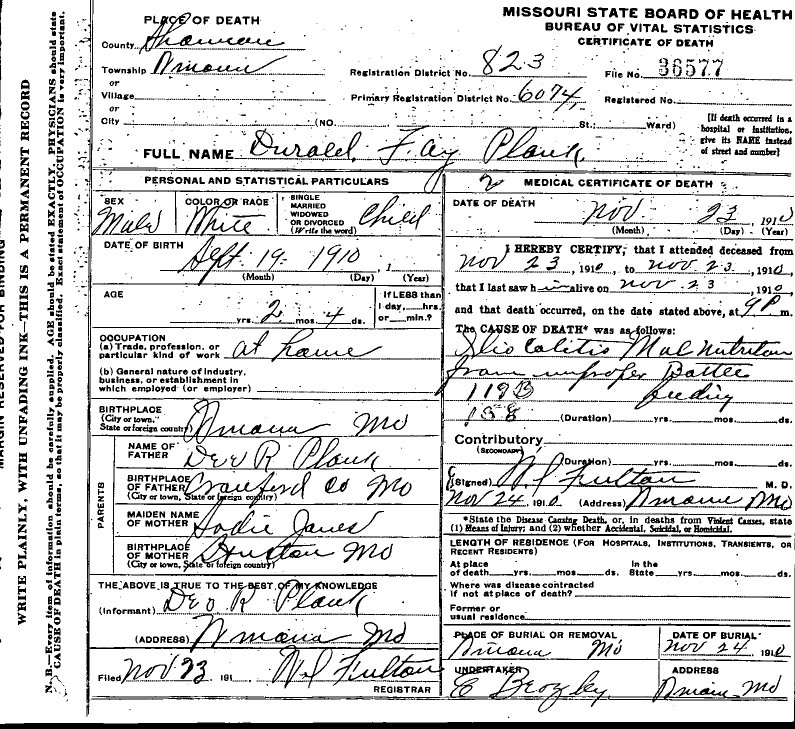 MISSOURI STATE BOARD OF HEALTH
BUREAU OF VITAL STATISTICS
CERTIFICATE OF DEATH
PLACE OF DEATH
County Shannon
Township
or
Village
or
City (NO. St.; Ward)
Registration District No. 823
File No. 36577
Primary Registration District No. 6074
Registered No.
[If death occurred in a hospital or institution, give its NAME instead of street and number]
FULL NAME Durald Fay Plank
PERSONAL AND STATISTICAL PARTICULARS
SEX Male
COLOR OR RACE White
SINGLE MARRIED WIDOWED OR DIVORCED (Write the word) Child
DATE OF BIRTH Sept. 19 1910
(Month) (Day) (Year)
AGE yrs. 2 mos. 4 ds.
If LESS than 1 day, hrs. or min.?
OCCUPATION
(a) Trade, profession, or particular kind of work at home
(b) General nature of industry, business, or establishment in which employed (or employer)
BIRTHPLACE (City or town, State or foreign country) Mo
PARENTS
NAME OF FATHER R Plank
BIRTHPLACE OF FATHER (City or town, State or foreign country) Crawford Co Mo
MAIDEN NAME OF MOTHER Sadie James
BIRTHPLACE OF MOTHER (City or town, State or foreign country) Houston Mo
THE ABOVE IS TRUE TO THE BEST OF MY KNOWLEDGE
(Informant) R Plank
(ADDRESS) Mo
Filed Nov 23 191 Fulton
REGISTRAR
2 MEDICAL CERTIFICATE OF DEATH
DATE OF DEATH Nov 23 1910
(Month) (Day) (Year)
I HEREBY CERTIFY, that I attended deceased from
Nov 23, 1910, to Nov 23, 1910,
that I last saw h im alive on Nov 23 1910
and that death occurred, on the date stated above, at 9 P m.
The CAUSE OF DEATH* was as follows:
Ilio Colitis Mal Nutrition
from improper Bottle
119B feeding
158 (Duration) yrs. mos. ds.
Contributory
(SECONDARY)
(Duration) yrs. mos. ds.
(Signed) Fulton M. D.
Nov 24, 1910 (Address) Mo
*State the Disease Causing Death, or, in deaths from Violent Causes, state
(1) Means of Injury; and (2) whether Accidental, Suicidal, or Homicidal.
LENGTH OF RESIDENCE (FOR HOSPITALS, INSTITUTIONS, TRANSIENTS, OR RECENT RESIDENTS)
At place of death yrs. mos. ds. In the State yrs. mos. ds.
Where was disease contracted if not at place of death?
Former or usual residence
PLACE OF BURIAL OR REMOVAL Mo
DATE OF BURIAL Nov 24 1910
UNDERTAKER
ADDRESS Mo
MARGIN RESERVED FOR BINDING
WRITE PLAINLY, WITH UNFADING INK—THIS IS A PERMANENT RECORD
N. B.—Every item of information should be carefully supplied. AGE should be stated EXACTLY. PHYSICIANS should state
CAUSE OF DEATH in plain terms, so that it may be properly classified. Exact statement of OCCUPATION is very important.